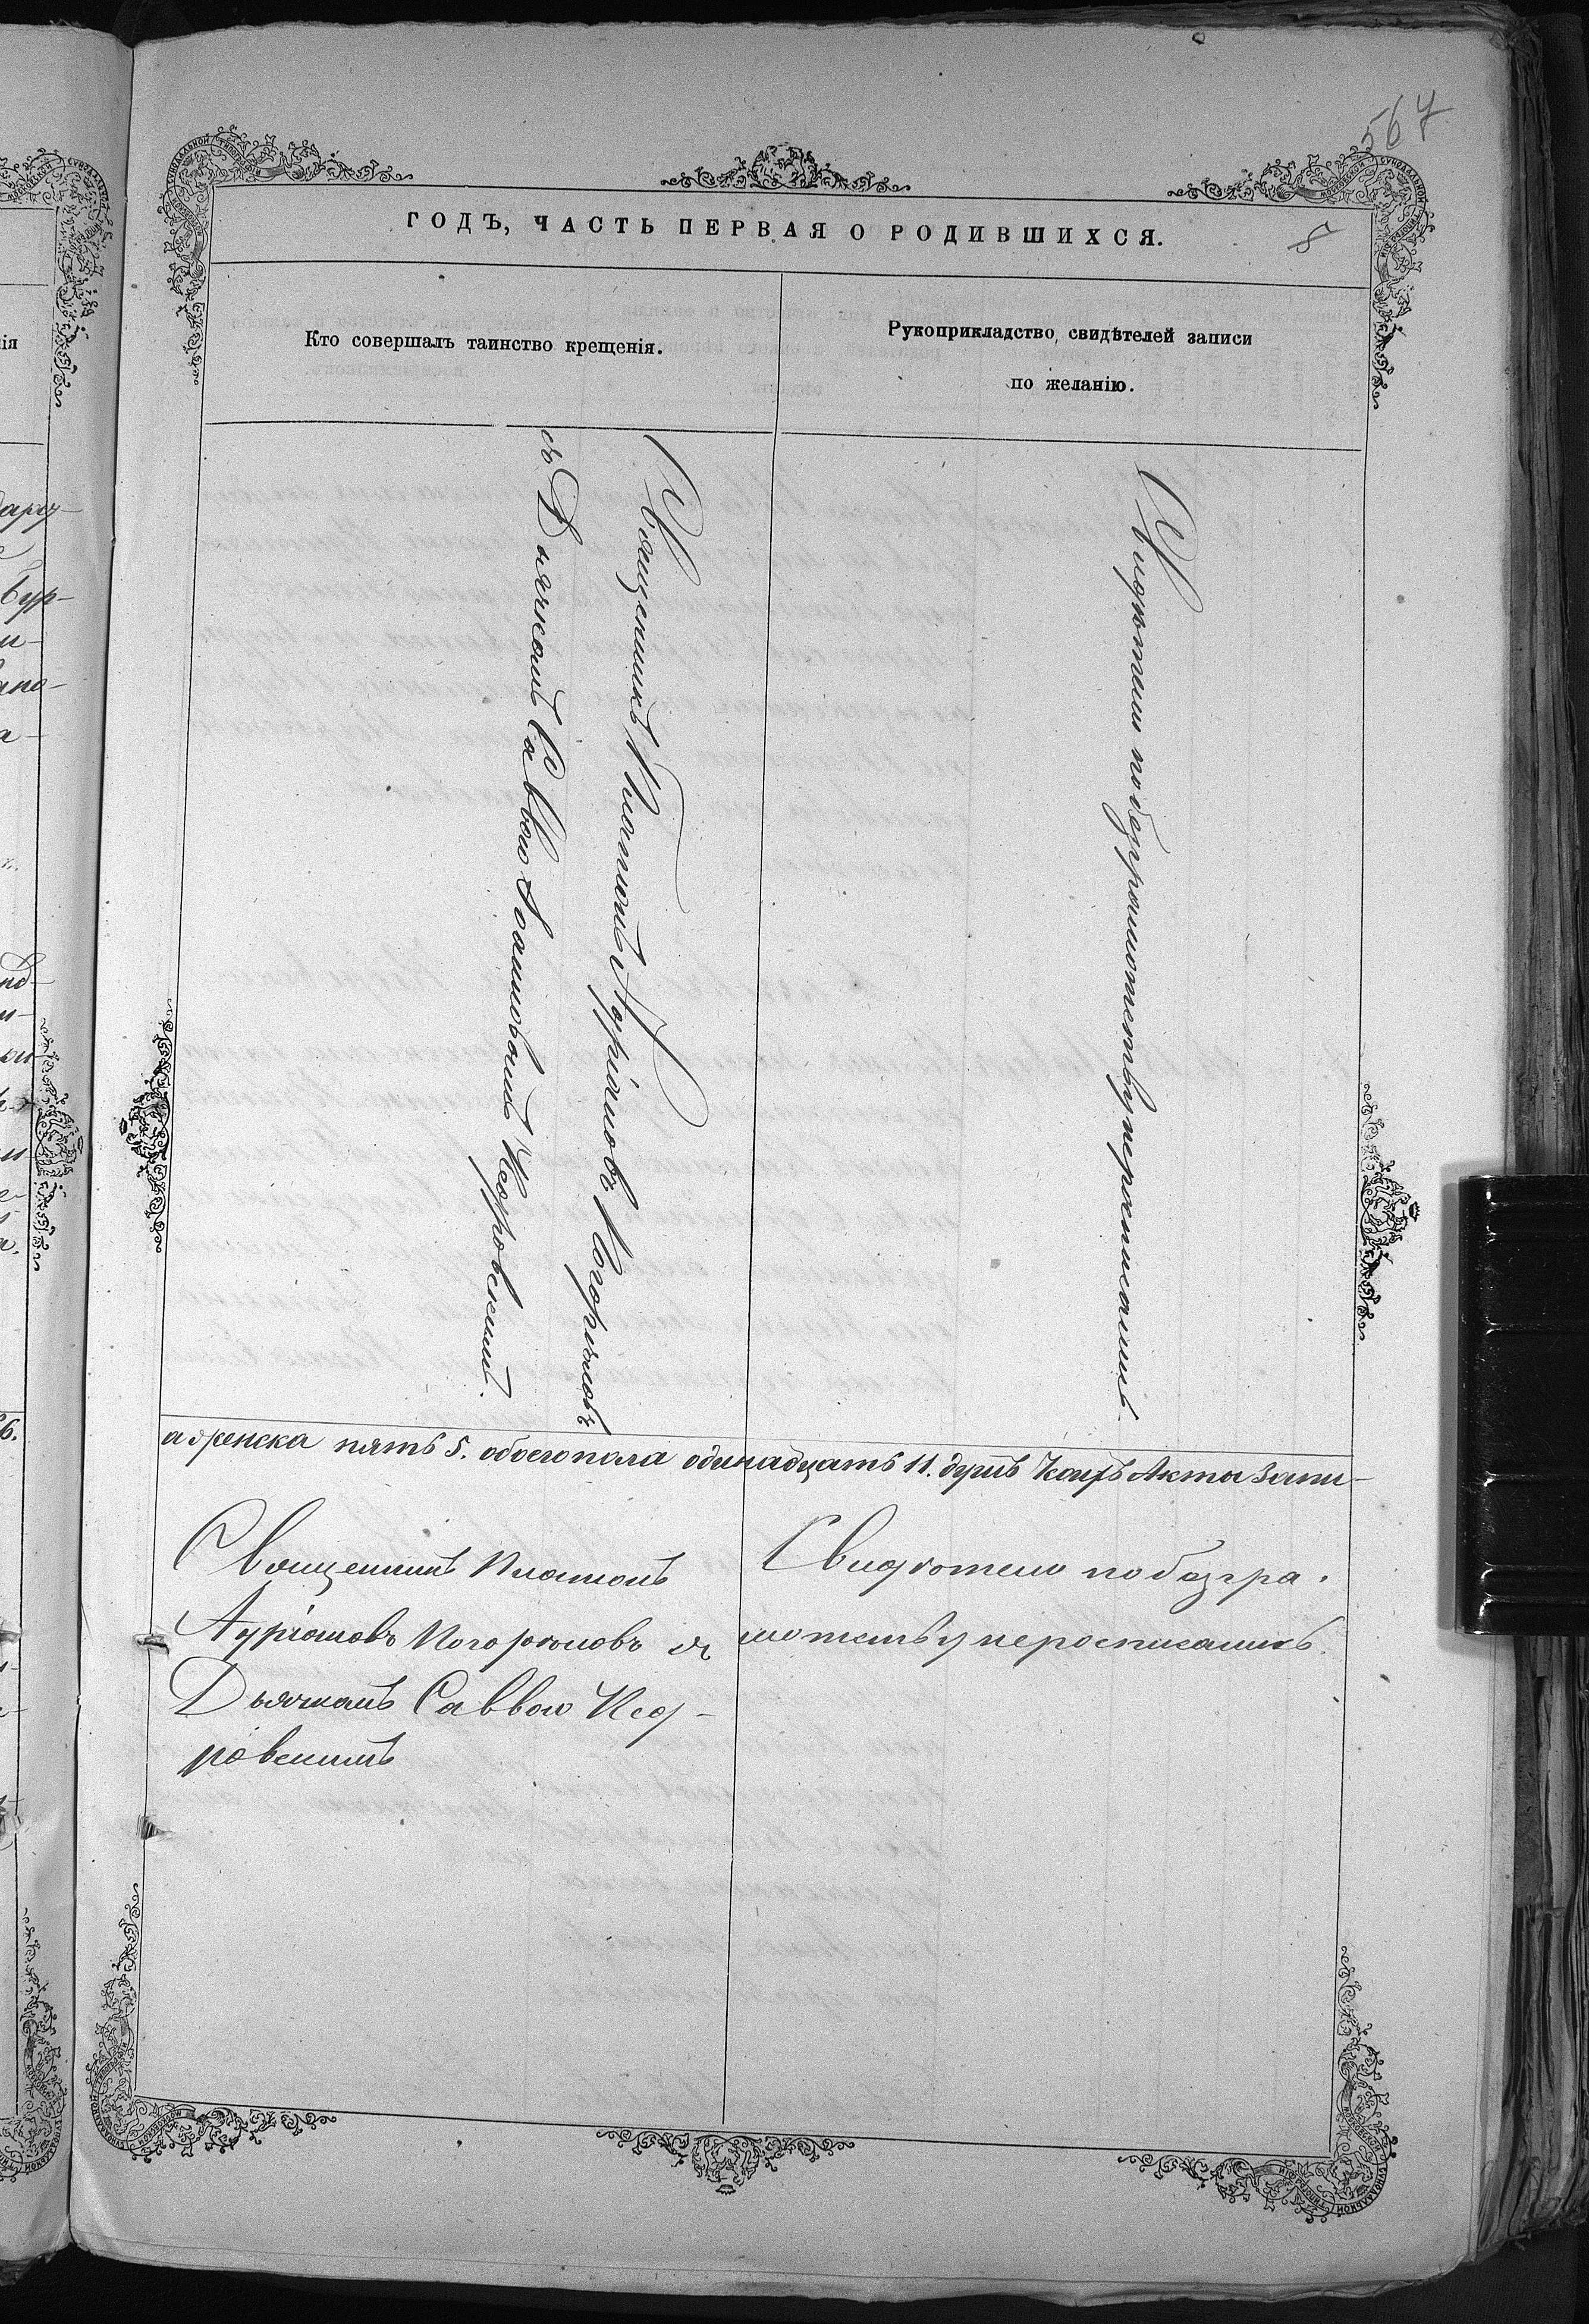 567
ГОДЪ, ЧАСТЬ ПЕРВАЯ О РОДИВШИХСЯ.
8
Кто совершалъ таинство крещенія.
Рукоприкладство свидѣтелей записи
по желанію.
Священникъ Платонъ Агріановъ Погорѣловъ
съ Дьячкомъ Саввою Іоанновымъ Кедровскимъ.
Свидѣтели по безграмотству неросписались.
а женска пять 5. обоего пола одинадцать 11. душъ Коихъ Акты Запи-
Священникъ Платонъ
Агріановъ Погорѣловъ съ
Дьячкомъ Саввою Кед-
ровскимъ
Свидѣтели по безгра-
мотству неросписались.